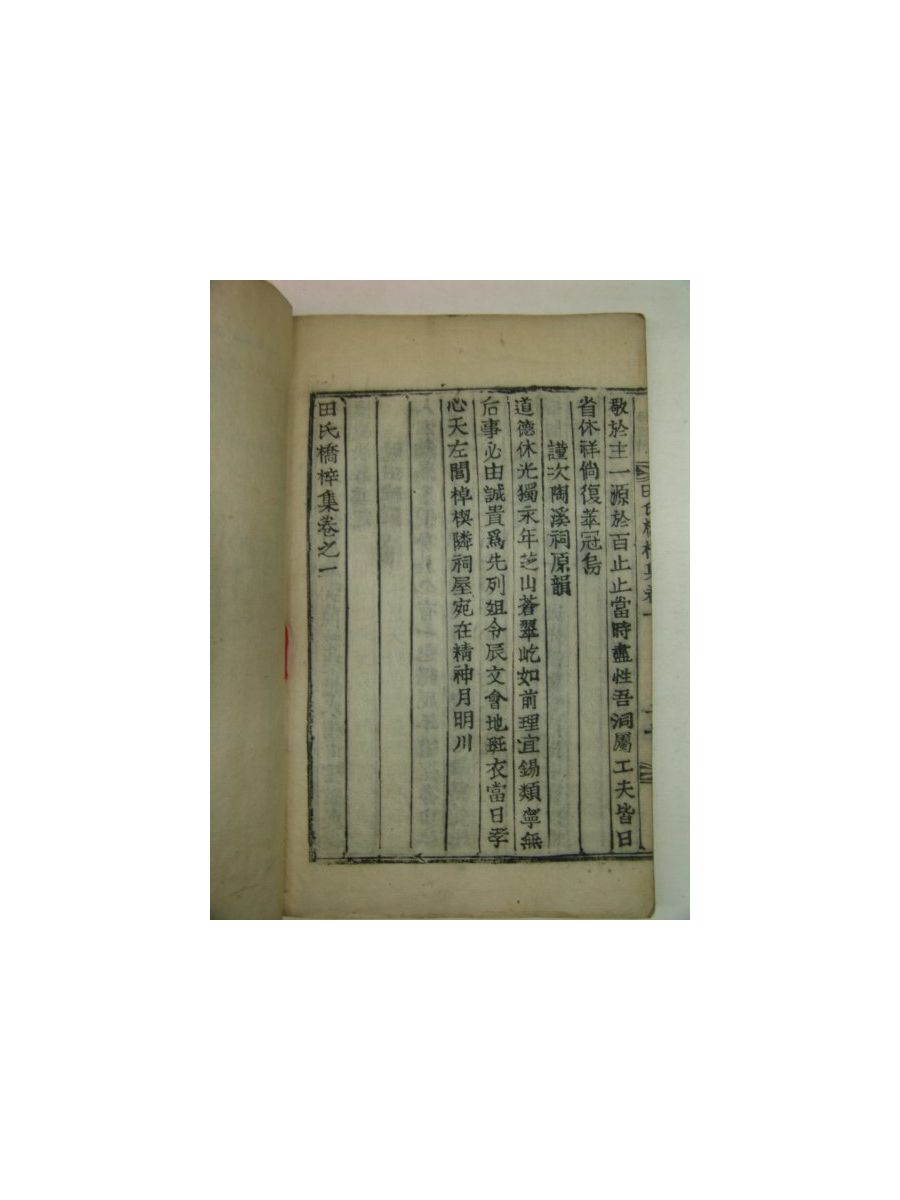 田氏橋梓集卷一
敬於主一源於百止止當時盡性吾洞屬工夫皆日
省休祥倘復萃冠雋
謹次陶溪祠原韻
道德休光獨永年芝山蒼翠屹如前理宜錫類寧無
后事必由誠貴爲先列姐令辰文會地斑衣當日孝
心天左閭棹楔隣祠屋宛在精神月明川
田氏橋梓集卷之一